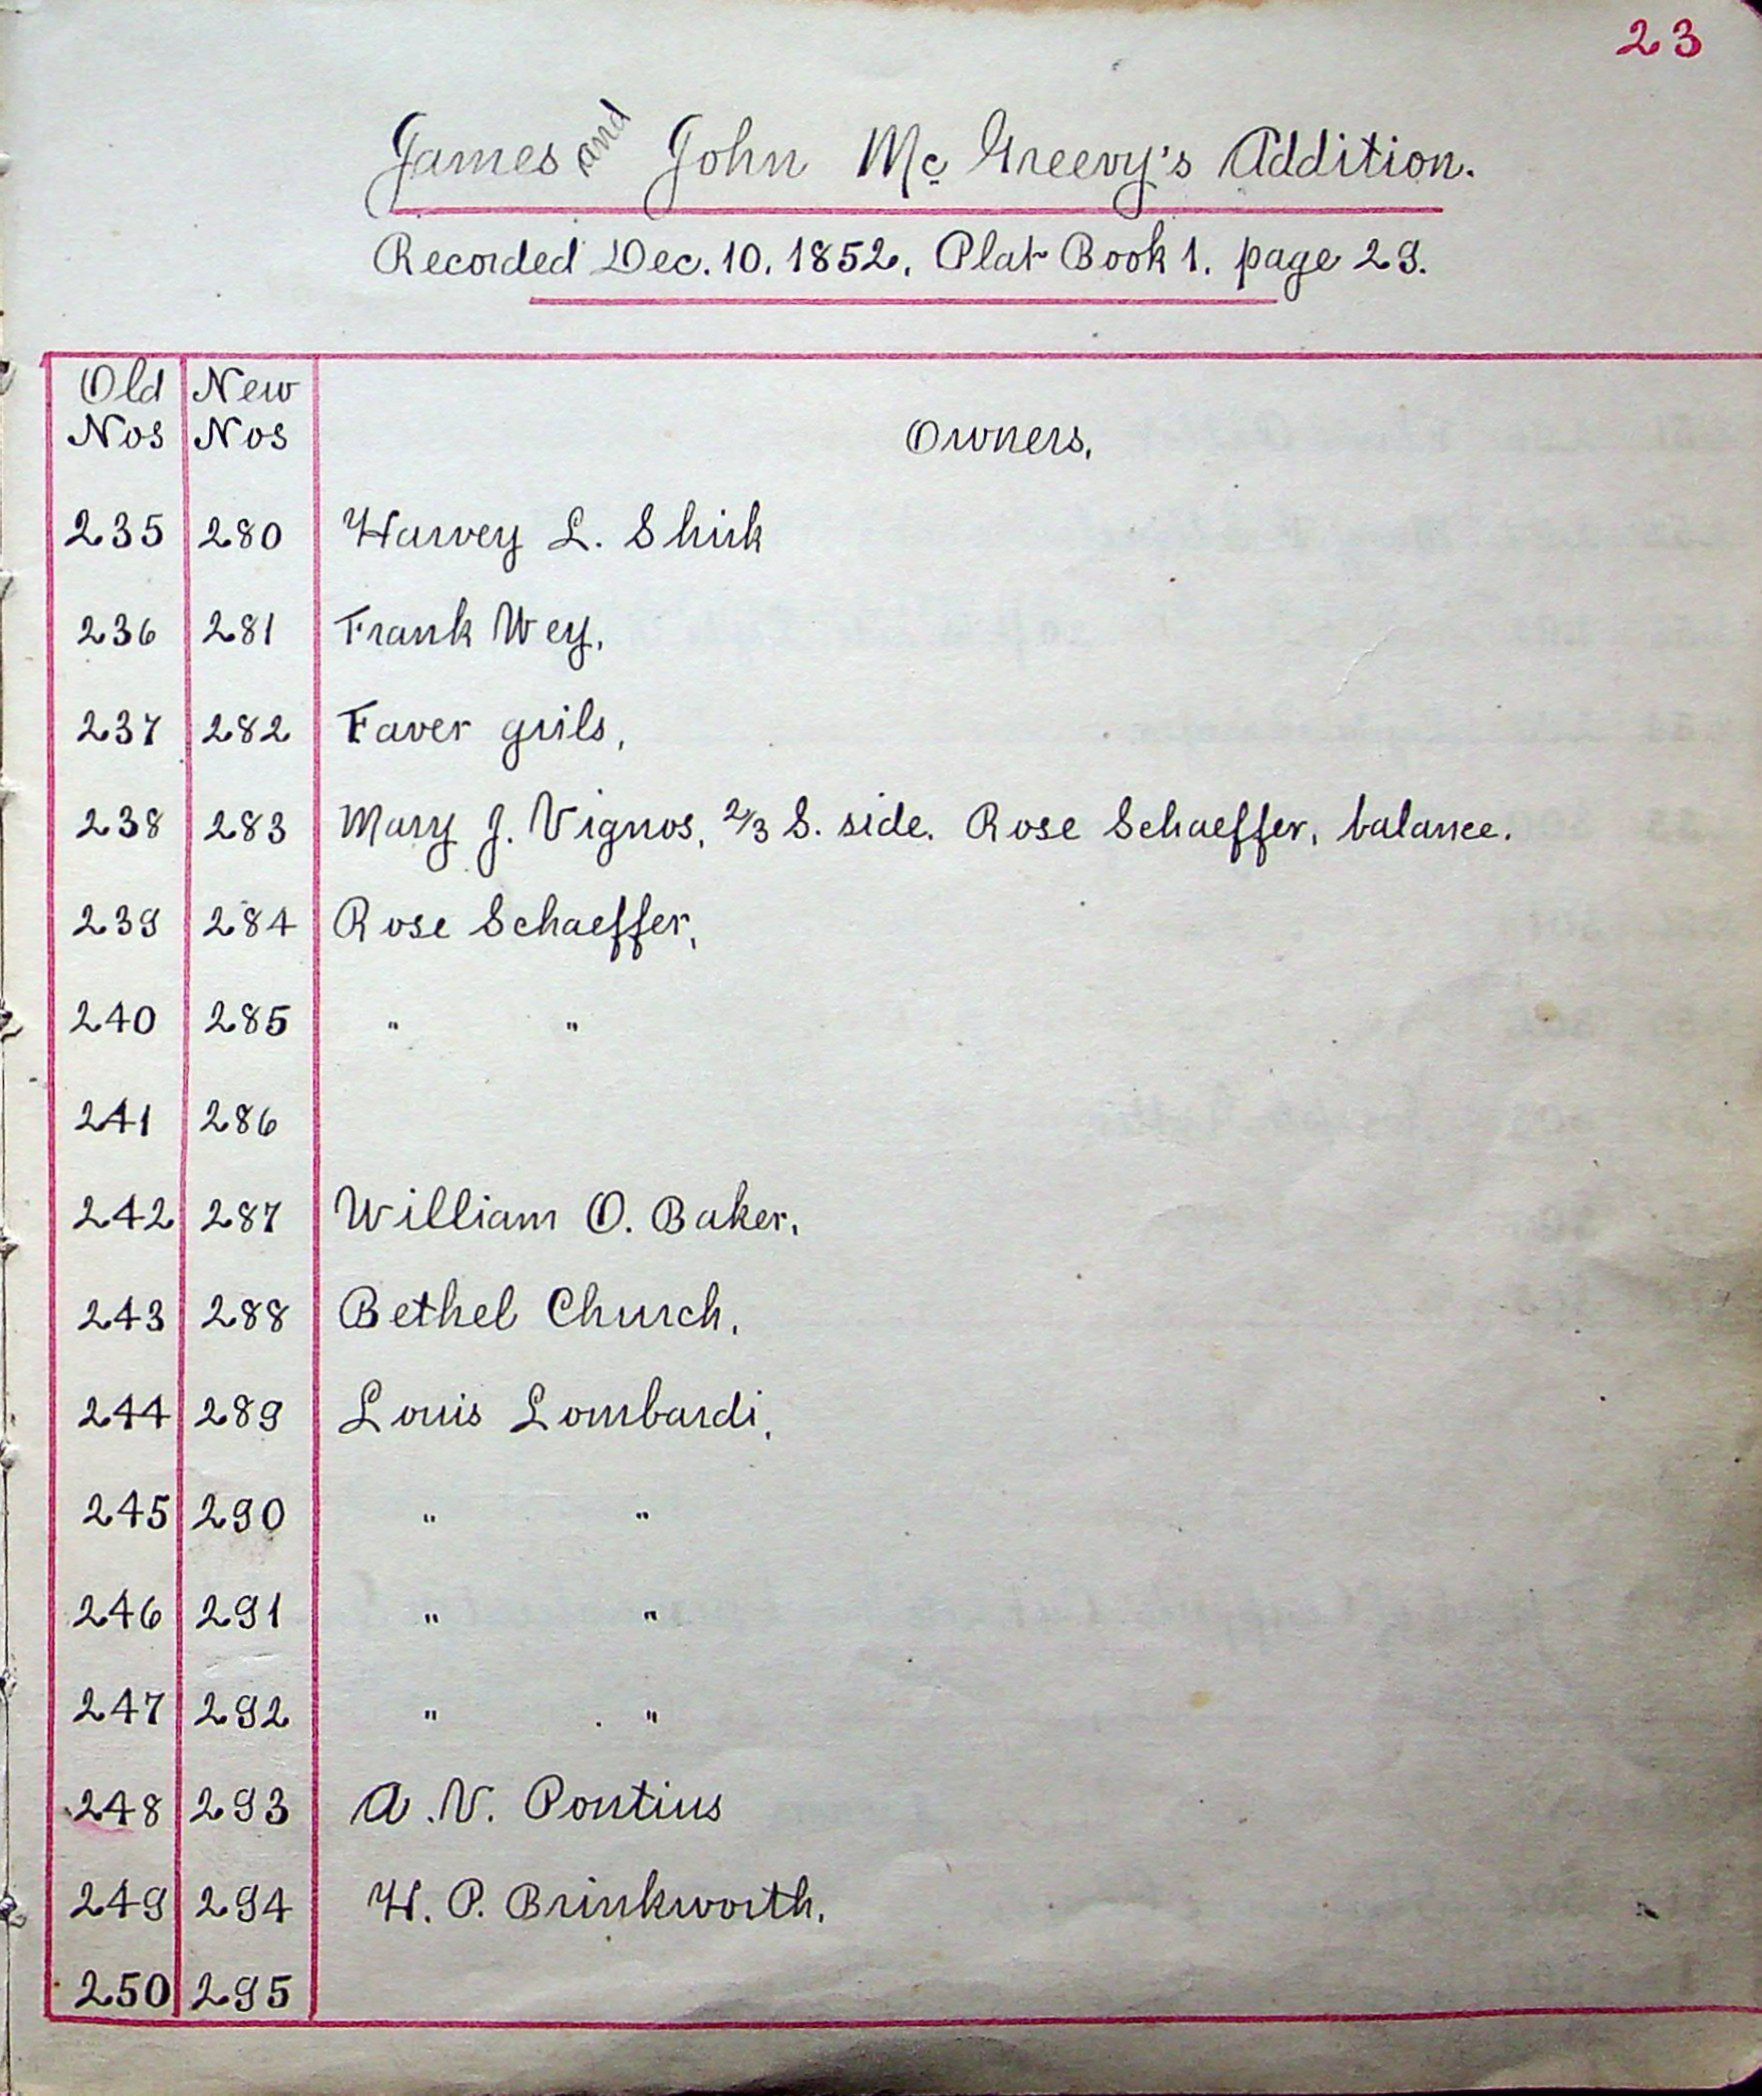 23
James and John Mc Greevy's Addition.
Recorded Dec. 10. 1852. Plat Book 1. page 29.
Old Nos New Nos Owners.
235 280 Harvey L. Shirk
236 281 Frank Wey.
237 282 Faver girls.
238 283 Mary J. Vignos. 2/3 S. side. Rose Schaeffer. balance.
239 284 Rose Schaeffer.
240 285 " "
241 286
242 287 William O. Baker.
243 288 Bethel Church.
244 289 Louis Lombardi.
245 290 " "
246 291 " "
247 292 " "
248 293 A. V. Pontius
249 294 H. P. Brinkworth.
250 295